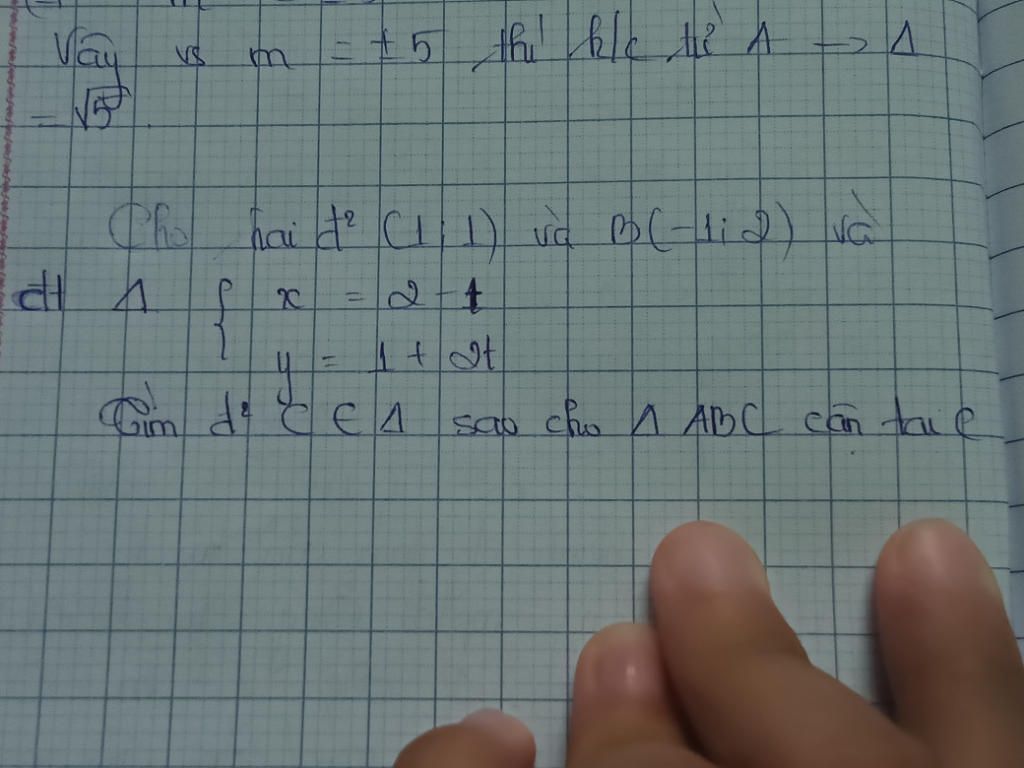 Vậy vs m = ± 5 thì k/c từ A → Δ
= √5
Cho hai đ² (1; 1) và B(-1; 2) và
đt Δ { x = 2 - t
y = 1 + 2t
Tìm đ² C ∈ Δ sao cho Δ ABC cân tại C